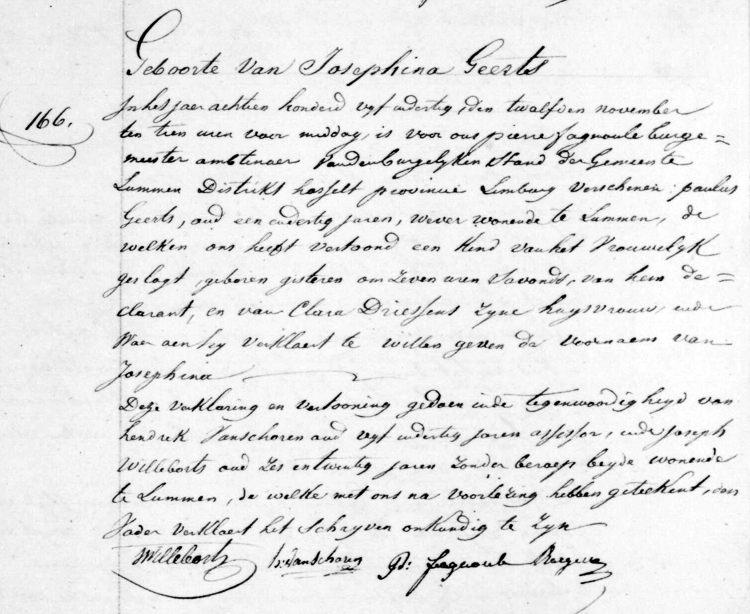 Geboorte van Josephina Geerts
166.
In het jaer achtien honderd vyf endertig, den twalfden november
ten tien uren voor middag, is voor ons pierre fagnoule burge=
meester ambtenaer vanden burgelyken Stand der Gemeente
Lummen Distrikt hasselt provincie Limburg verschenen: paulus
Geerts, oud een endertig jaren, wever wonende te Lummen, de
welken ons heeft vertoond een kind van het vrouwelyk
geslagt, geboren gisteren om zeven uren savonds, van hem de=
clarant, en van Clara Driessens zyne huysvrouw, ende
Waer aen hy verklaert te willen geven de voornaem van
Josephina
Deze verklaring en vertooning gedaen inde tegenwoordigheyd van
hendrik Vanschoren oud vyf endertig jaren assessor, ende joseph
Willeborts oud zes entwintig jaren zonder beroep beyde wonende
te Lummen, de welke met ons na voorlezing hebben geteekent, den
Vader verklaert het Schryven onkundig te zyn
JWillebort h: VanSchoren Pd: fagnoule